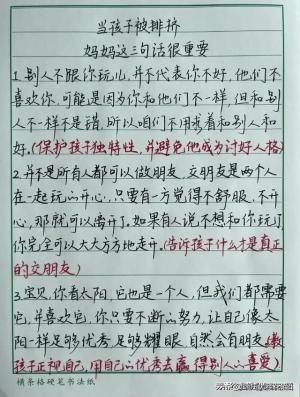 当孩子被排挤
妈妈这三句话很重要
1.别人不跟你玩儿,并不代表你不好,他们不
喜欢你,可能是因为你和他们不一样,但和别
人不一样不是错,所以咱们不用求着和别人和
好.(保护孩子独特性,并避免他成为讨好人格)
2.并不是所有人都可以做朋友,交朋友是两个人
在一起玩的开心,只要有一方觉得不舒服,不开
心,那就可以离开了.如果有人说不想和你玩了,
你完全可以大大方方地走开.(告诉孩子什么才是真正
的交朋友)
3.宝贝,你看太阳,它也是一个人,但我们都需要
它,并喜欢它,你只要不断的努力,让自己像太
阳一样足够优秀,足够耀眼,自然会有朋友(教
孩子正视自己,用自己的优秀去赢得别人的喜爱)
横条格硬笔书法纸